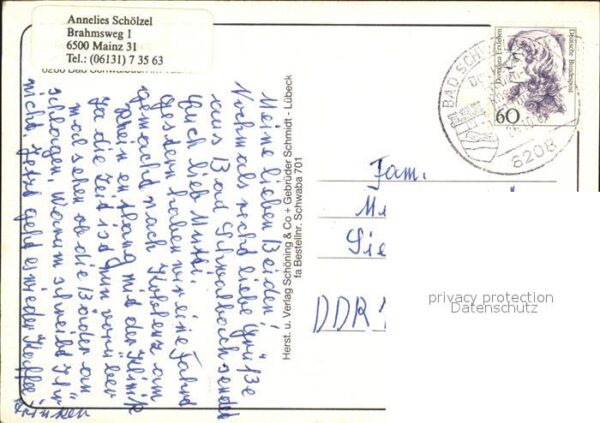 Annelies Schölzel
Brahmsweg 1
6500 Mainz 31
Tel.: (06131) 7 35 63
Meine lieben Beiden!
Nochmals recht liebe Grüße
aus Bad Schwalbach sendet
Euch lieb Mutti.
Gestern haben wir eine Fahrt
gemacht nach Koblenz am
Rhein entlang mit der Klinik
Ja die Zeit ist nun vorüber
mal sehen ob die Bäder an
schlagen. Warum schreibt Ihr
nicht. Jetzt geht es wieder Kaffee
trinken
Herst. u. Verlag Schöning & Co + Gebrüder Schmidt - Lübeck
fa Bestellnr. Schwaba 701
BAD SCH
6208
Dorothea Erxleben
Deutsche Bundespost
60
Fam.
DDR
privacy protection
Datenschutz